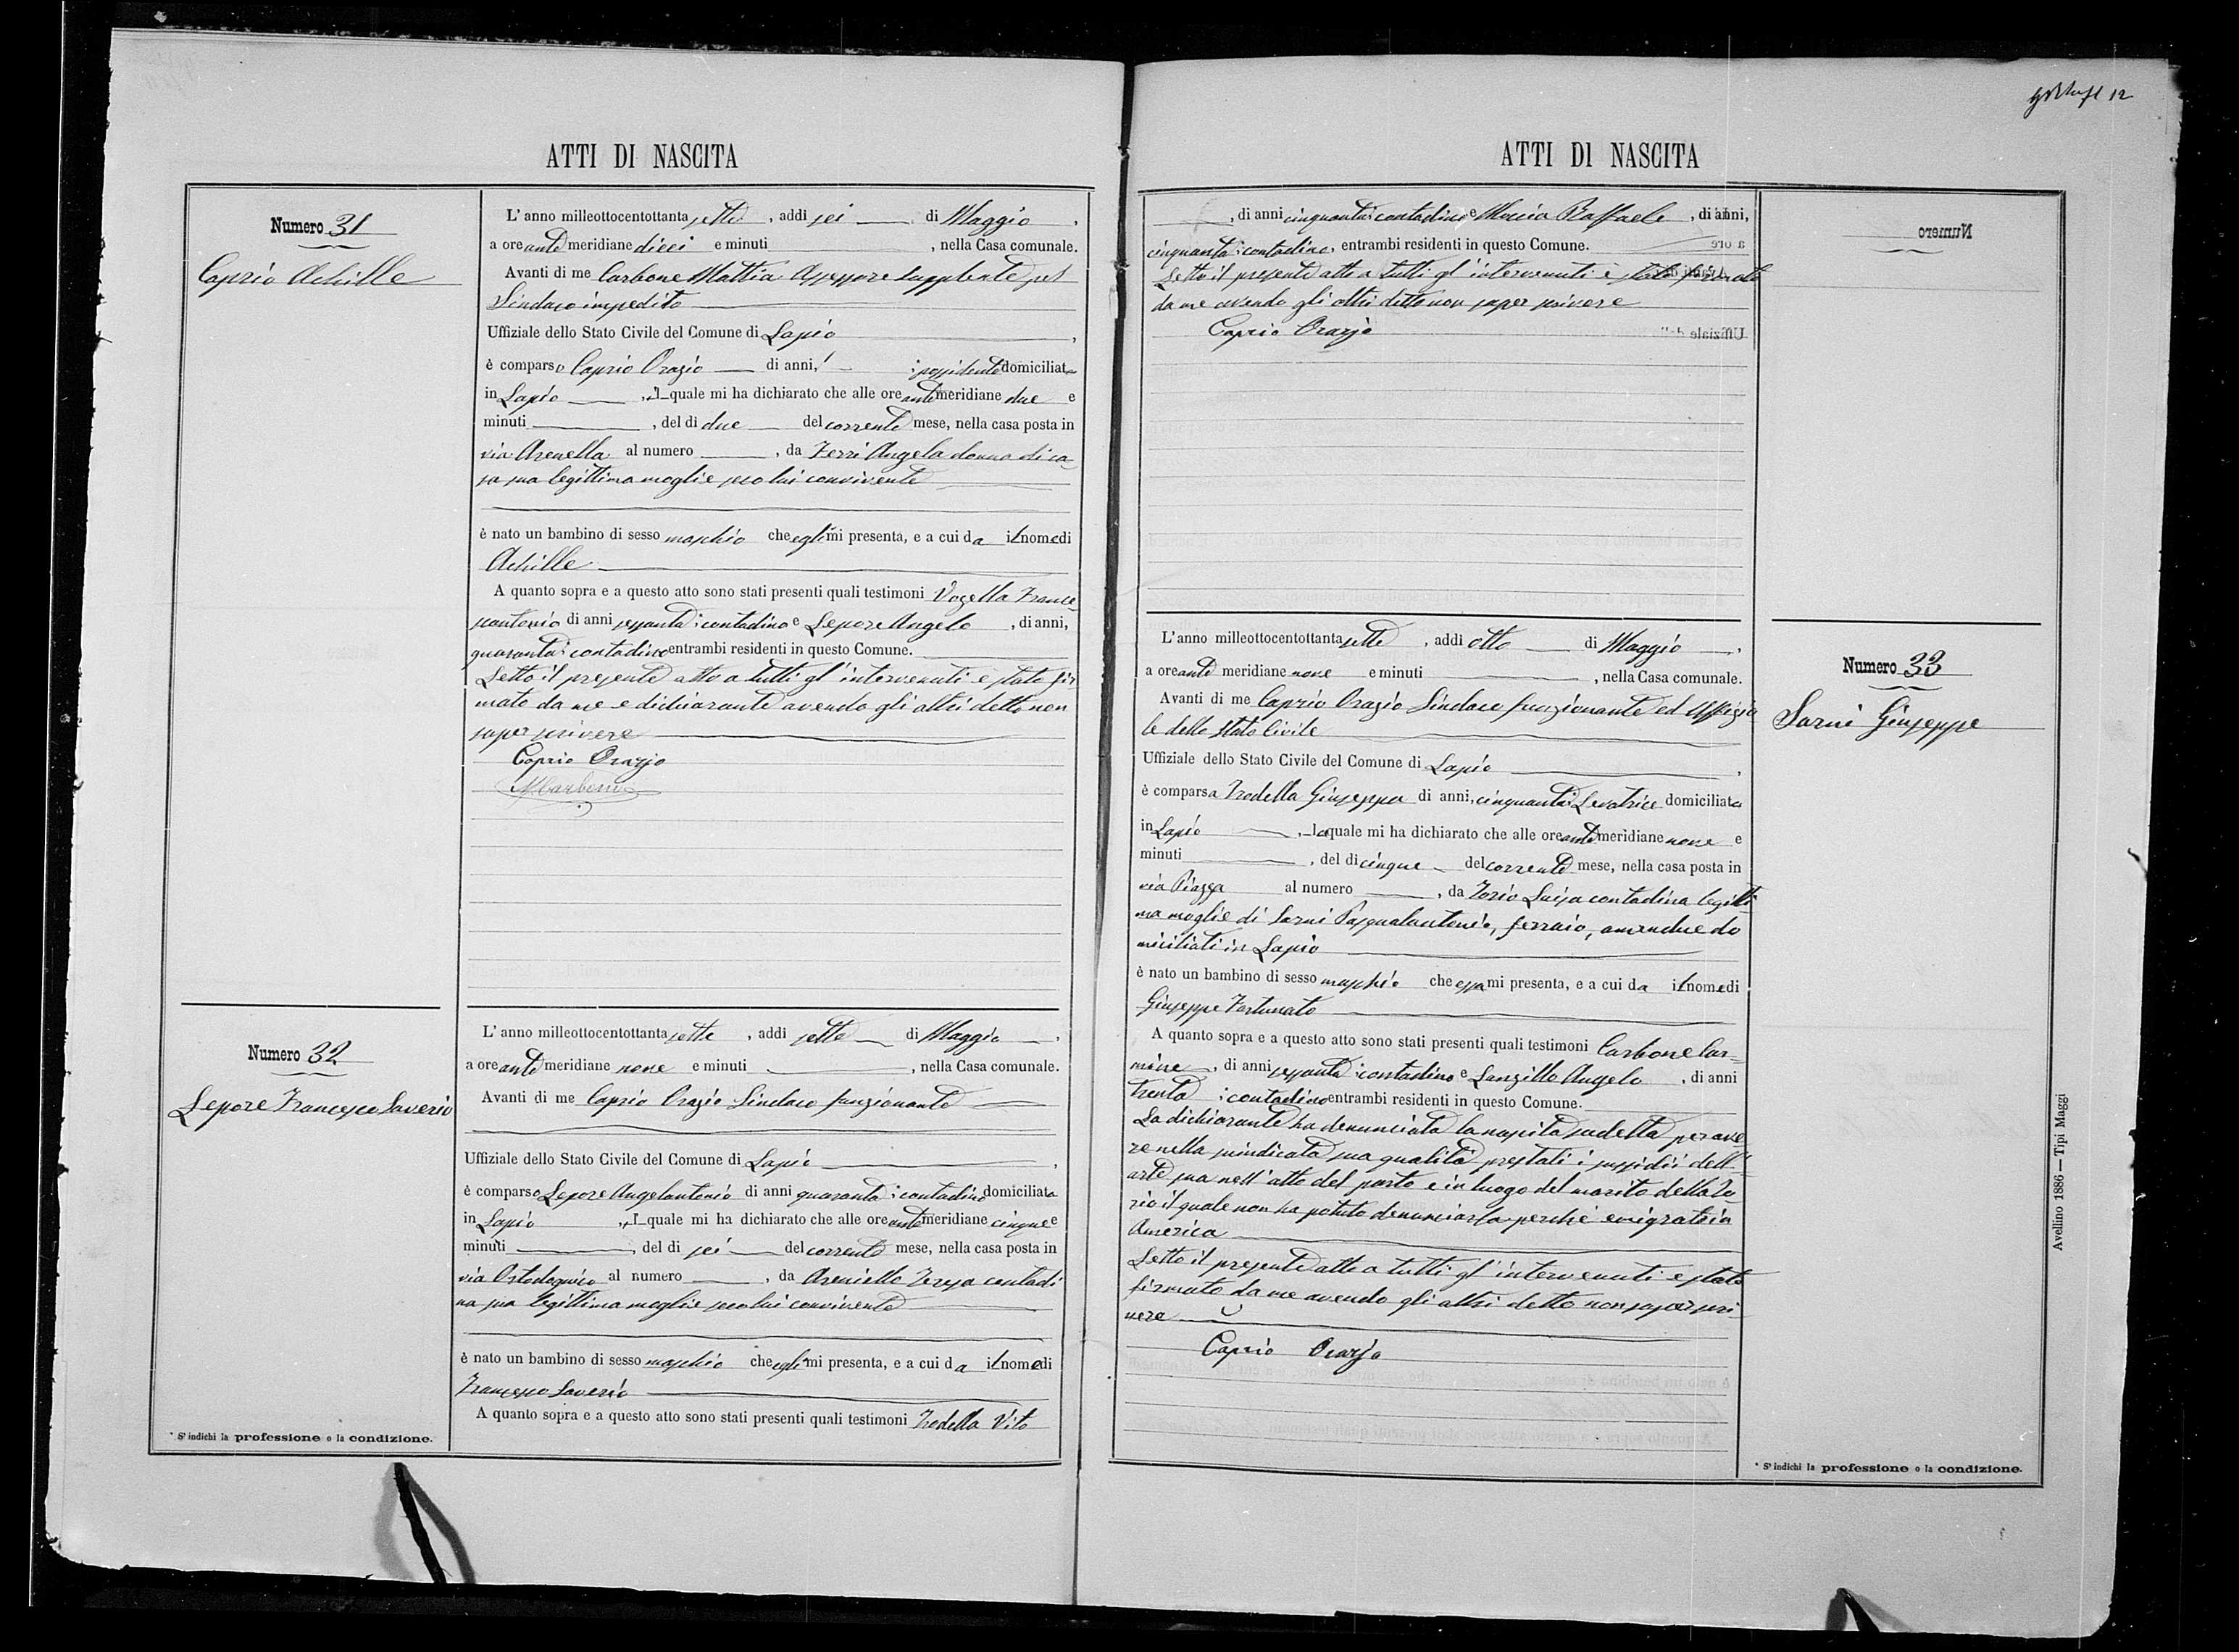 ATTI DI NASCITA
Numero 31
Caprio Achille
L'anno milleottocentottantasette, addì sei di Maggio,
a ore ante meridiane dieci e minuti , nella Casa comunale.
Avanti di me Carbone Mattia Assessore supplente pel
Sindaco impedito
Uffiziale dello Stato Civile del Comune di Lapio,
è comparso Caprio Orazio di anni, possidente domiciliato
in Lapio, il quale mi ha dichiarato che alle ore antemeridiane due e
minuti , del dì due del corrente mese, nella casa posta in
via Arenella al numero , da Ferri Angela donna di ca-
sa sua legittima moglie seco lui convivente
è nato un bambino di sesso maschio che egli mi presenta, e a cui da il nome di
Achille
A quanto sopra e a questo atto sono stati presenti quali testimoni Vozella France-
scantonio di anni sessanta contadino e Lepore Angelo, di anni,
quaranta contadino entrambi residenti in questo Comune.
Letto il presente atto a tutti gl'intervenuti e stato fir
mato da me e dichiarante avendo gli altri detto non
saper scrivere
Caprio Orazio
MCarbone
Numero 32
Lepore Francesco Saverio
L'anno milleottocentottantasette, addì sette di Maggio,
a ore ante meridiane nove e minuti , nella Casa comunale.
Avanti di me Caprio Orazio Sindaco funzionante
Uffiziale dello Stato Civile del Comune di Lapio,
è comparso Lepore Angelantonio di anni quaranta contadino domiciliato
in Lapio, il quale mi ha dichiarato che alle ore antemeridiane cinque e
minuti , del dì sei del corrente mese, nella casa posta in
via al numero , da Areniello Teresa contadi
na sua legittima moglie seco lui convivente
è nato un bambino di sesso maschio che egli mi presenta, e a cui da il nome di
Francesco Saverio
A quanto sopra e a questo atto sono stati presenti quali testimoni Trodella Vito
* S'indichi la professione o la condizione.
12
ATTI DI NASCITA
, di anni cinquanta contadino e Moccia Raffaele, di anni,
cinquanta contadino, entrambi residenti in questo Comune.
Letto il presente atto a tutti gl'intervenuti è stato firmato
da me avendo gli altri detto non saper scrivere
Caprio Orazio
Numero
Numero 33
Sarni Giuseppe
L'anno milleottocentottantasette, addì otto di Maggio,
a ore ante meridiane nove e minuti , nella Casa comunale.
Avanti di me Caprio Orazio Sindaco funzionante ed Uffizia
le dello Stato Civile
Uffiziale dello Stato Civile del Comune di Lapio,
è comparsa Trodella Giuseppa di anni, cinquanta Levatrice domiciliata
in Lapio, la quale mi ha dichiarato che alle ore antemeridiane nove e
minuti , del dì cinque del corrente mese, nella casa posta in
via Piazza al numero , da Iorio Luisa contadina legitti-
ma moglie di Sarni Pasqualantonio, ferraio, amendue do
miciliati in Lapio
è nato un bambino di sesso maschio che essa mi presenta, e a cui da il nome di
Giuseppe Fortunato
A quanto sopra e a questo atto sono stati presenti quali testimoni Carbone Car-
mine, di anni sessanta contadino e Lanzillo Angelo, di anni
trenta contadino entrambi residenti in questo Comune.
La dichiarante ha denunciata la nascita sudetta per ave-
re nella suindicata sua qualità prestati i sussidii dell'
arte sua nell'atto del parto e in luogo del marito della Io-
rio il quale non ha potuto denunciarla perché emigrato in
America
Letto il presente atto a tutti gl'intervenuti e stato
firmato da me avendo gli altri detto non saper scri-
vere
Caprio Orazio
* S'indichi la professione o la condizione.
Avellino 1886 — Tipi Maggi